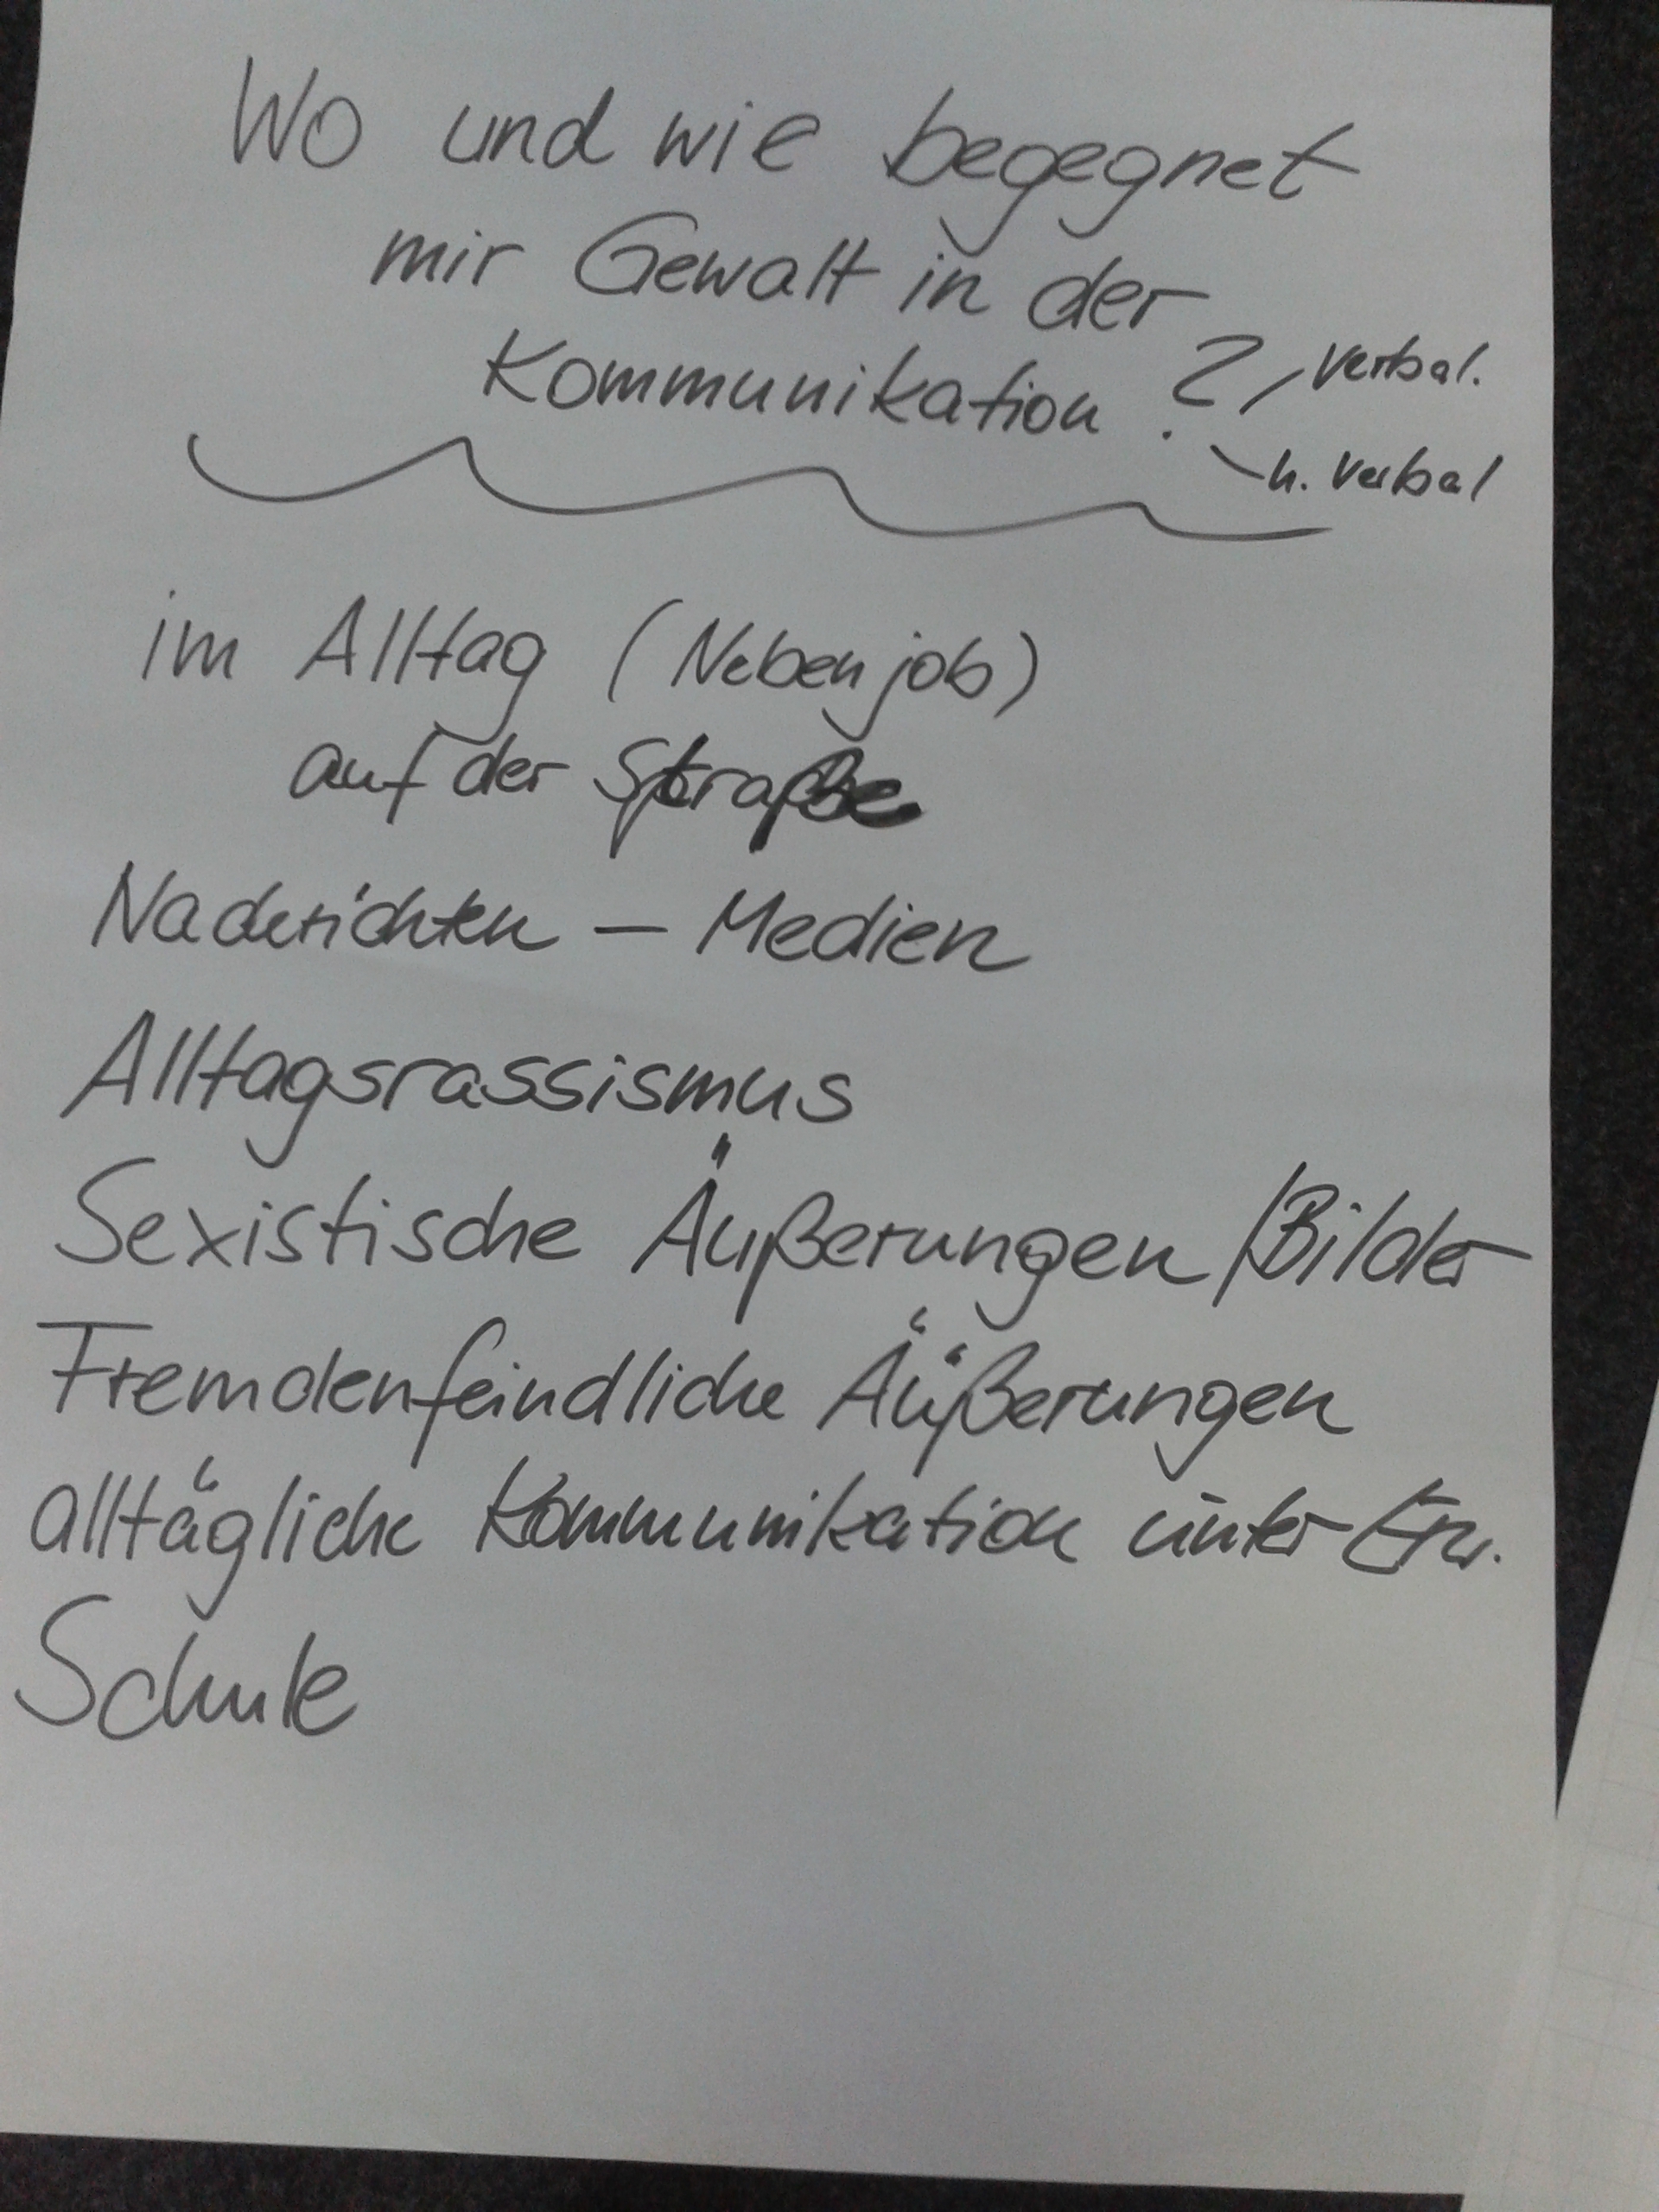 Wo und wie begegnet
mir Gewalt in der
Kommunikation ?
verbal.
n. verbal
im Alltag (Nebenjob)
auf der Straße
Nachrichten – Medien
Alltagsrassismus
Sexistische Äußerungen/Bilder
Fremdenfeindliche Äußerungen
alltägliche Kommunikation unter Erw.
Schule